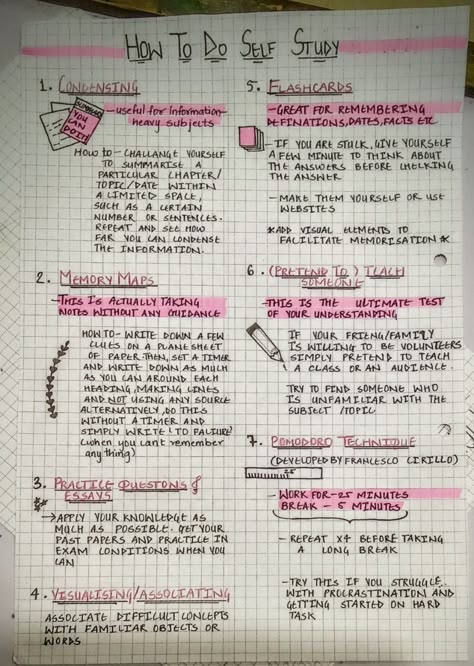 How To Do Self Study
1. CONDENSING
SUMMARISE
YOU
CAN
DO IT!
- useful for information-
heavy subjects
HOW TO - CHALLANGE YOURSELF
TO SUMMARISE A
PARTICULAR CHAPTER/
TOPIC/DATE WITHIN
A LIMITED SPACE,
SUCH AS A CERTAIN
NUMBER OR SENTENCES.
REPEAT AND SEE HOW
FAR YOU CAN CONDENSE
THE INFORMATION.
2. MEMORY MAPS
- THIS IS ACTUALLY TAKING
NOTES WITHOUT ANY GUIDANCE
HOW TO - WRITE DOWN A FEW
CLUES ON A PLANE SHEET
OF PAPER. THEN, SET A TIMER
AND WRITE DOWN AS MUCH
AS YOU CAN AROUND EACH
HEADING, MAKING LINES
AND NOT USING ANY SOURCE
ALTERNATIVELY, DO THIS
WITHOUT A TIMER AND
SIMPLY WRITE 'TO FALIURE'
(when you cant remember
any thing)
3. PRACTICE QUESTONS &
ESSAYS
→ APPLY YOUR KNOWLEDGE AS
MUCH AS POSSIBLE. GET YOUR
PAST PAPERS AND PRACTICE IN
EXAM CONDITIONS WHEN YOU
CAN
4. VISUALISING/ASSOCIATING
ASSOCIATE DIFFICULT CONCEPTS
WITH FAMILIAR OBJECTS OR
WORDS
5. FLASHCARDS
- GREAT FOR REMEMBERING
DEFINATIONS, DATES, FACTS ETC
- IF YOU ARE STUCK, GIVE YOURSELF
A FEW MINUTE TO THINK ABOUT
THE ANSWERS BEFORE CHECKING
THE ANSWER
- MAKE THEM YOURSELF OR USE
WEBSITES
*ADD VISUAL ELEMENTS TO
FACILITATE MEMORISATION *
6. (PRETEND TO) TEACH
SOMEONE
- THIS IS THE ULTIMATE TEST
OF YOUR UNDERSTANDING
IF YOUR FRIENG/FAMILY
IS WILLING TO BE VOLUNTEERS
SIMPLY PRETEND TO TEACH
A CLASS OR AN AUDIENCE.
TRY TO FIND SOMEONE WHO
IS UNFAMILIAR WITH THE
SUBJECT /TOPIC
7. POMODORO TECHNIQUE
(DEVELOPED BY FRANCESCO CIRILLO)
25
- WORK FOR - 25 MINUTES
BREAK - 5 MINUTES
- REPEAT X4 BEFORE TAKING
A LONG BREAK
- TRY THIS IF YOU STRUGGLE
WITH PROCRASTINATION AND
GETTING STARTED ON HARD
TASK